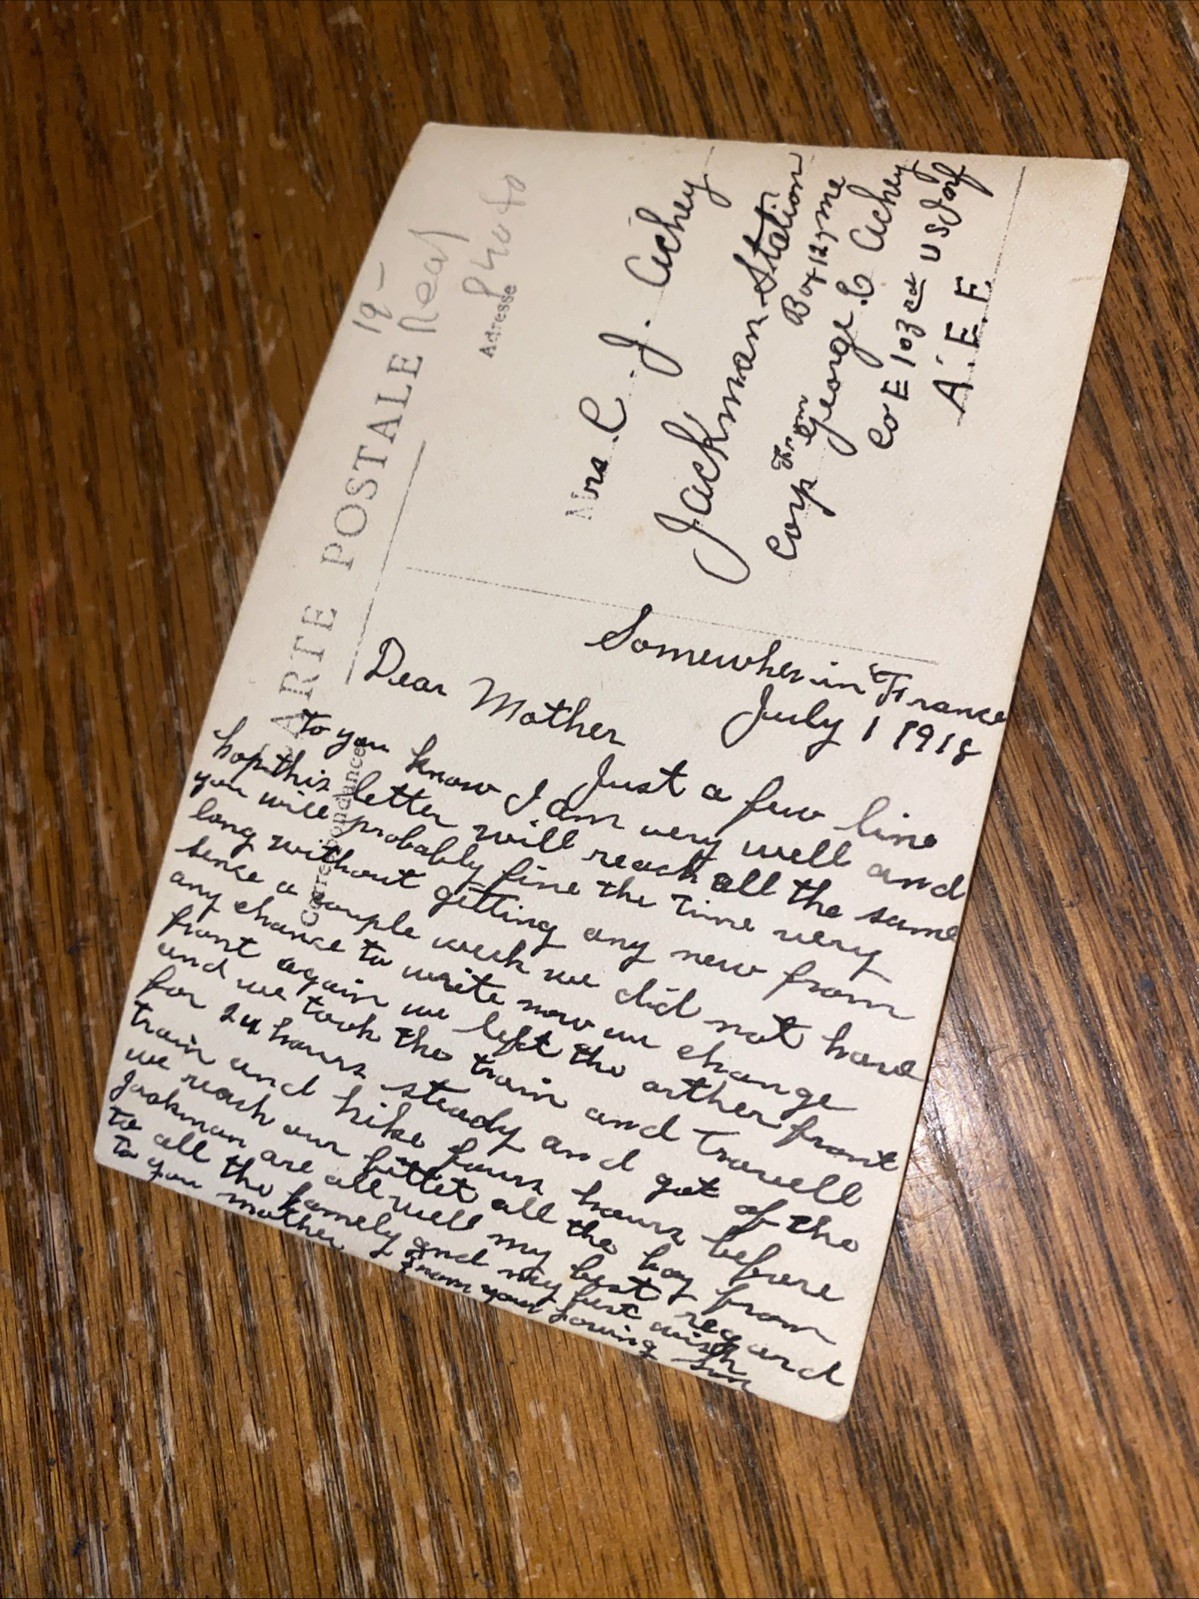 CARTE POSTALE
19-
Real
Photo
Correspondance
Adresse
Mrs. C. J. Achey
Jackman Station
Box 127 me
From
Corp George. C Achey
Co E 103rd U S Inf
A. E. F.
Somewher in "France
July 1 1918
Dear Mother
Just a few line
to you know I am very well and
hop this letter will reach all the same
you will probably fine the time very
long without getting any new from
sence a couple week we did not have
any chance to write now we change
front again we left the arther front
and we took the train and travell
for 24 hours steady and got of the
train and hike fours hours before
we reach our bittet all the boy from
Jackman are all well my best regard
to all the famely and my best wish
to you mother
From your loving son